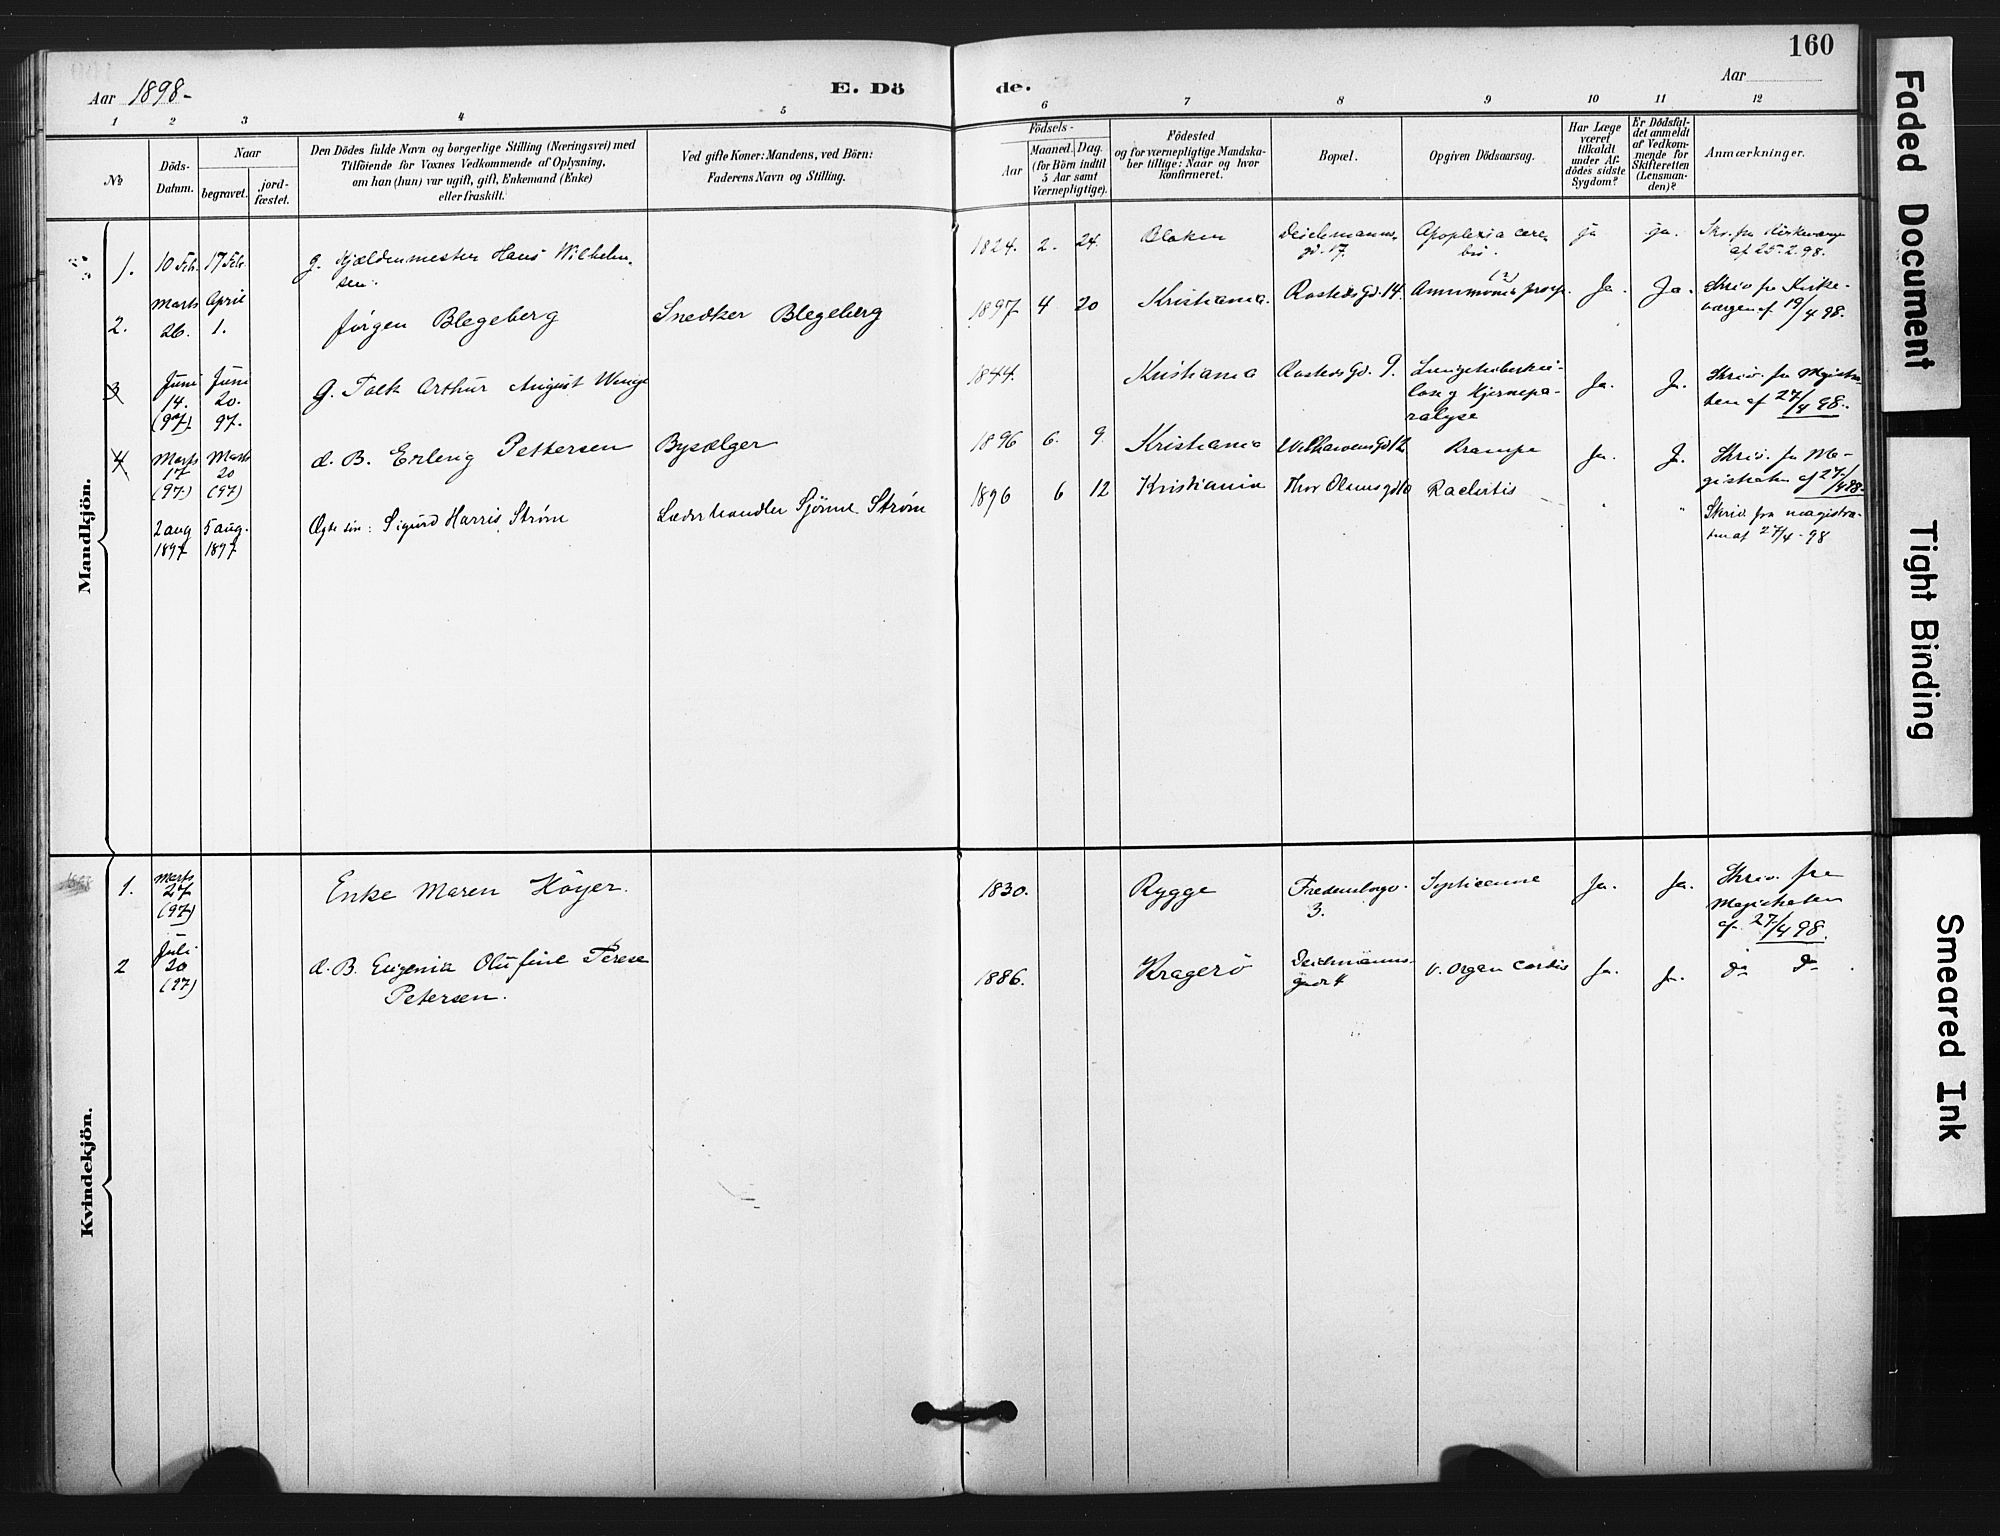 160
Aar 1898-
E. Dö
de.
Aar
1 2 3 4 5 6 7 8 9 10 11 12
№
Döds-
Datum.
Naar
begravet.
jord-
fæstet.
Den Dödes fulde Navn og borgerlige Stilling (Næringsvei) med
Tilföiende for Voxnes Vedkommende af Oplysning,
om han (hun) var ugift, gift, Enkemand (Enke)
eller fraskilt.
Ved gifte Koner: Mandens, ved Börn:
Faderens Navn og Stilling.
Födsels-
Aar
Maaned. Dag.
(for Börn indtil
5 Aar samt
Værnepligtige).
Födested
og for værnepligtige Mandska-
ber tillige: Naar og hvor
konfirmeret.
Bopæl.
Opgiven Dödsaarsag.
Har Læge
været
tilkaldt
under Af-
dödes sidste
Sygdom?
Er Dödsfal-
det anmeldt
af Vedkom-
mende for
Skifteretten
(Lensman-
den)?
Anmærkninger.
Mandkjön.
1. 10 Feb. 17 Feb. g. Kjældermester Hans Wilhelm-
sen. 1824. 2. 24. Deichmanns-
gd. 17. Apoplexia cere-
bri. ja ja. Skr. fra Kirkeværge
af 25.2.98.
2. Marts
26. April
1. Jørgen Blegeberg Snedker Blegeberg 1897 4 20 Kristiania. Rosteds Gd. 14. (?) Ja. Ja. Skriv fra Kirke-
værgen af 19/4 98.
3 Juni
14.
(97) Juni
20.
97. g. Arthur August 1844. Kristiania Rosteds Gd. 9. Lungetuberku-
lose og Hjernepa-
ralyse Ja. Ja. Skriv. fra Magistra-
ten af 27/4 98.
4 Marts
17
(97) Marts
20
(97) d. B. Erling Pettersen Bysælger 1896 6. 9. Kristiania Krampe Ja. Ja. Skriv. fra Ma-
gistraten af 27/4 98.
2 aug
1897 5 aug.
1897 Ægte søn: Sigurd Harris Strøm Læderhandler Strøm 1896 6 12 Kristiania Thor Olsens gd 10 Rachitis " " Skriv fra magistra-
ten af 27/4 - 98
Kvindekjön.
1. Marts
27
(97) Enke Maren Höyer. 1830. Rygge Fredensborgv.
3. Septicæmie Ja. Ja. Skriv. fra
Magistraten
af 27/4 98.
2 Juli
20
(97) d. B. Eugenia Olufine Terese
Petersen. 1886. Kragerö Deichmanns-
gade 4 v. organ cordis Ja. Ja. do do.
Faded Document
Tight Binding
Smeared Ink